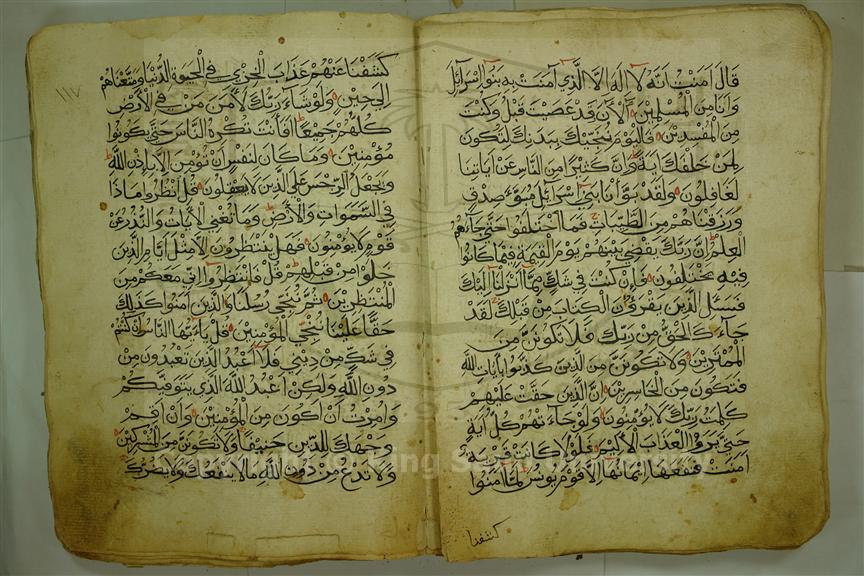 قال امنت انه لا اله الا الذي آمنت به بنوا اسرائيل
وانا من المسلمين الآن وقد عصيت قبل وكنت
من المفسدين فاليوم ننجيك ببدنك لتكون
لمن خلفك اية وان كثيرا من الناس عن اياتنا
لغافلون ولقد بوأنا بني اسرائيل مبوء صدق
ورزقناهم من الطيبات فما اختلفوا حتى جاءهم
العلم ان ربك يقضي بينهم يوم القيمة فيما كانوا
فيه يختلفون فان كنت في شك مما انزلنا اليك
فسئل الذين يقرؤن الكتاب من قبلك لقد
جاءك الحق من ربك فلا تكونن من
الممترين ولا تكونن من الذين كذبوا بايات الله
فتكون من الخاسرين ان الذين حقت عليهم
كلمت ربك لا يؤمنون ولو جاءتهم كل اية
حتى يروا العذاب الاليم فلولا كانت قرية
امنت فنفعها ايمانها الا قوم يونس لما امنوا
كشفنا
١١٧
كشفنا عنهم عذاب الخزي في الحيوة الدنيا ومتعناهم
الى حين ولو شاء ربك لآمن من في الارض
كلهم جميعا افانت تكره الناس حتى يكونوا
مؤمنين وما كان لنفس ان تؤمن الا باذن الله
ويجعل الرجس على الذين لا يعقلون قل انظروا ماذا
في السموات والارض وما تغني الايات والنذر عن
قوم لا يؤمنون فهل ينتظرون الا مثل ايام الذين
خلوا من قبلهم قل فانتظروا اني معكم من
المنتظرين ثم ننجي رسلنا والذين امنوا كذلك
حقا علينا ننجي المؤمنين قل يا ءيها الناس ان كنتم
في شك من ديني فلا اعبد الذين تعبدون من
دون الله ولكن اعبد الله الذي يتوفيكم
وامرت ان اكون من المؤمنين وان اقم
وجهك للدين حنيفا ولا تكونن من المشركين
ولا تدع من دون الله ما لا ينفعك ولا يضرك